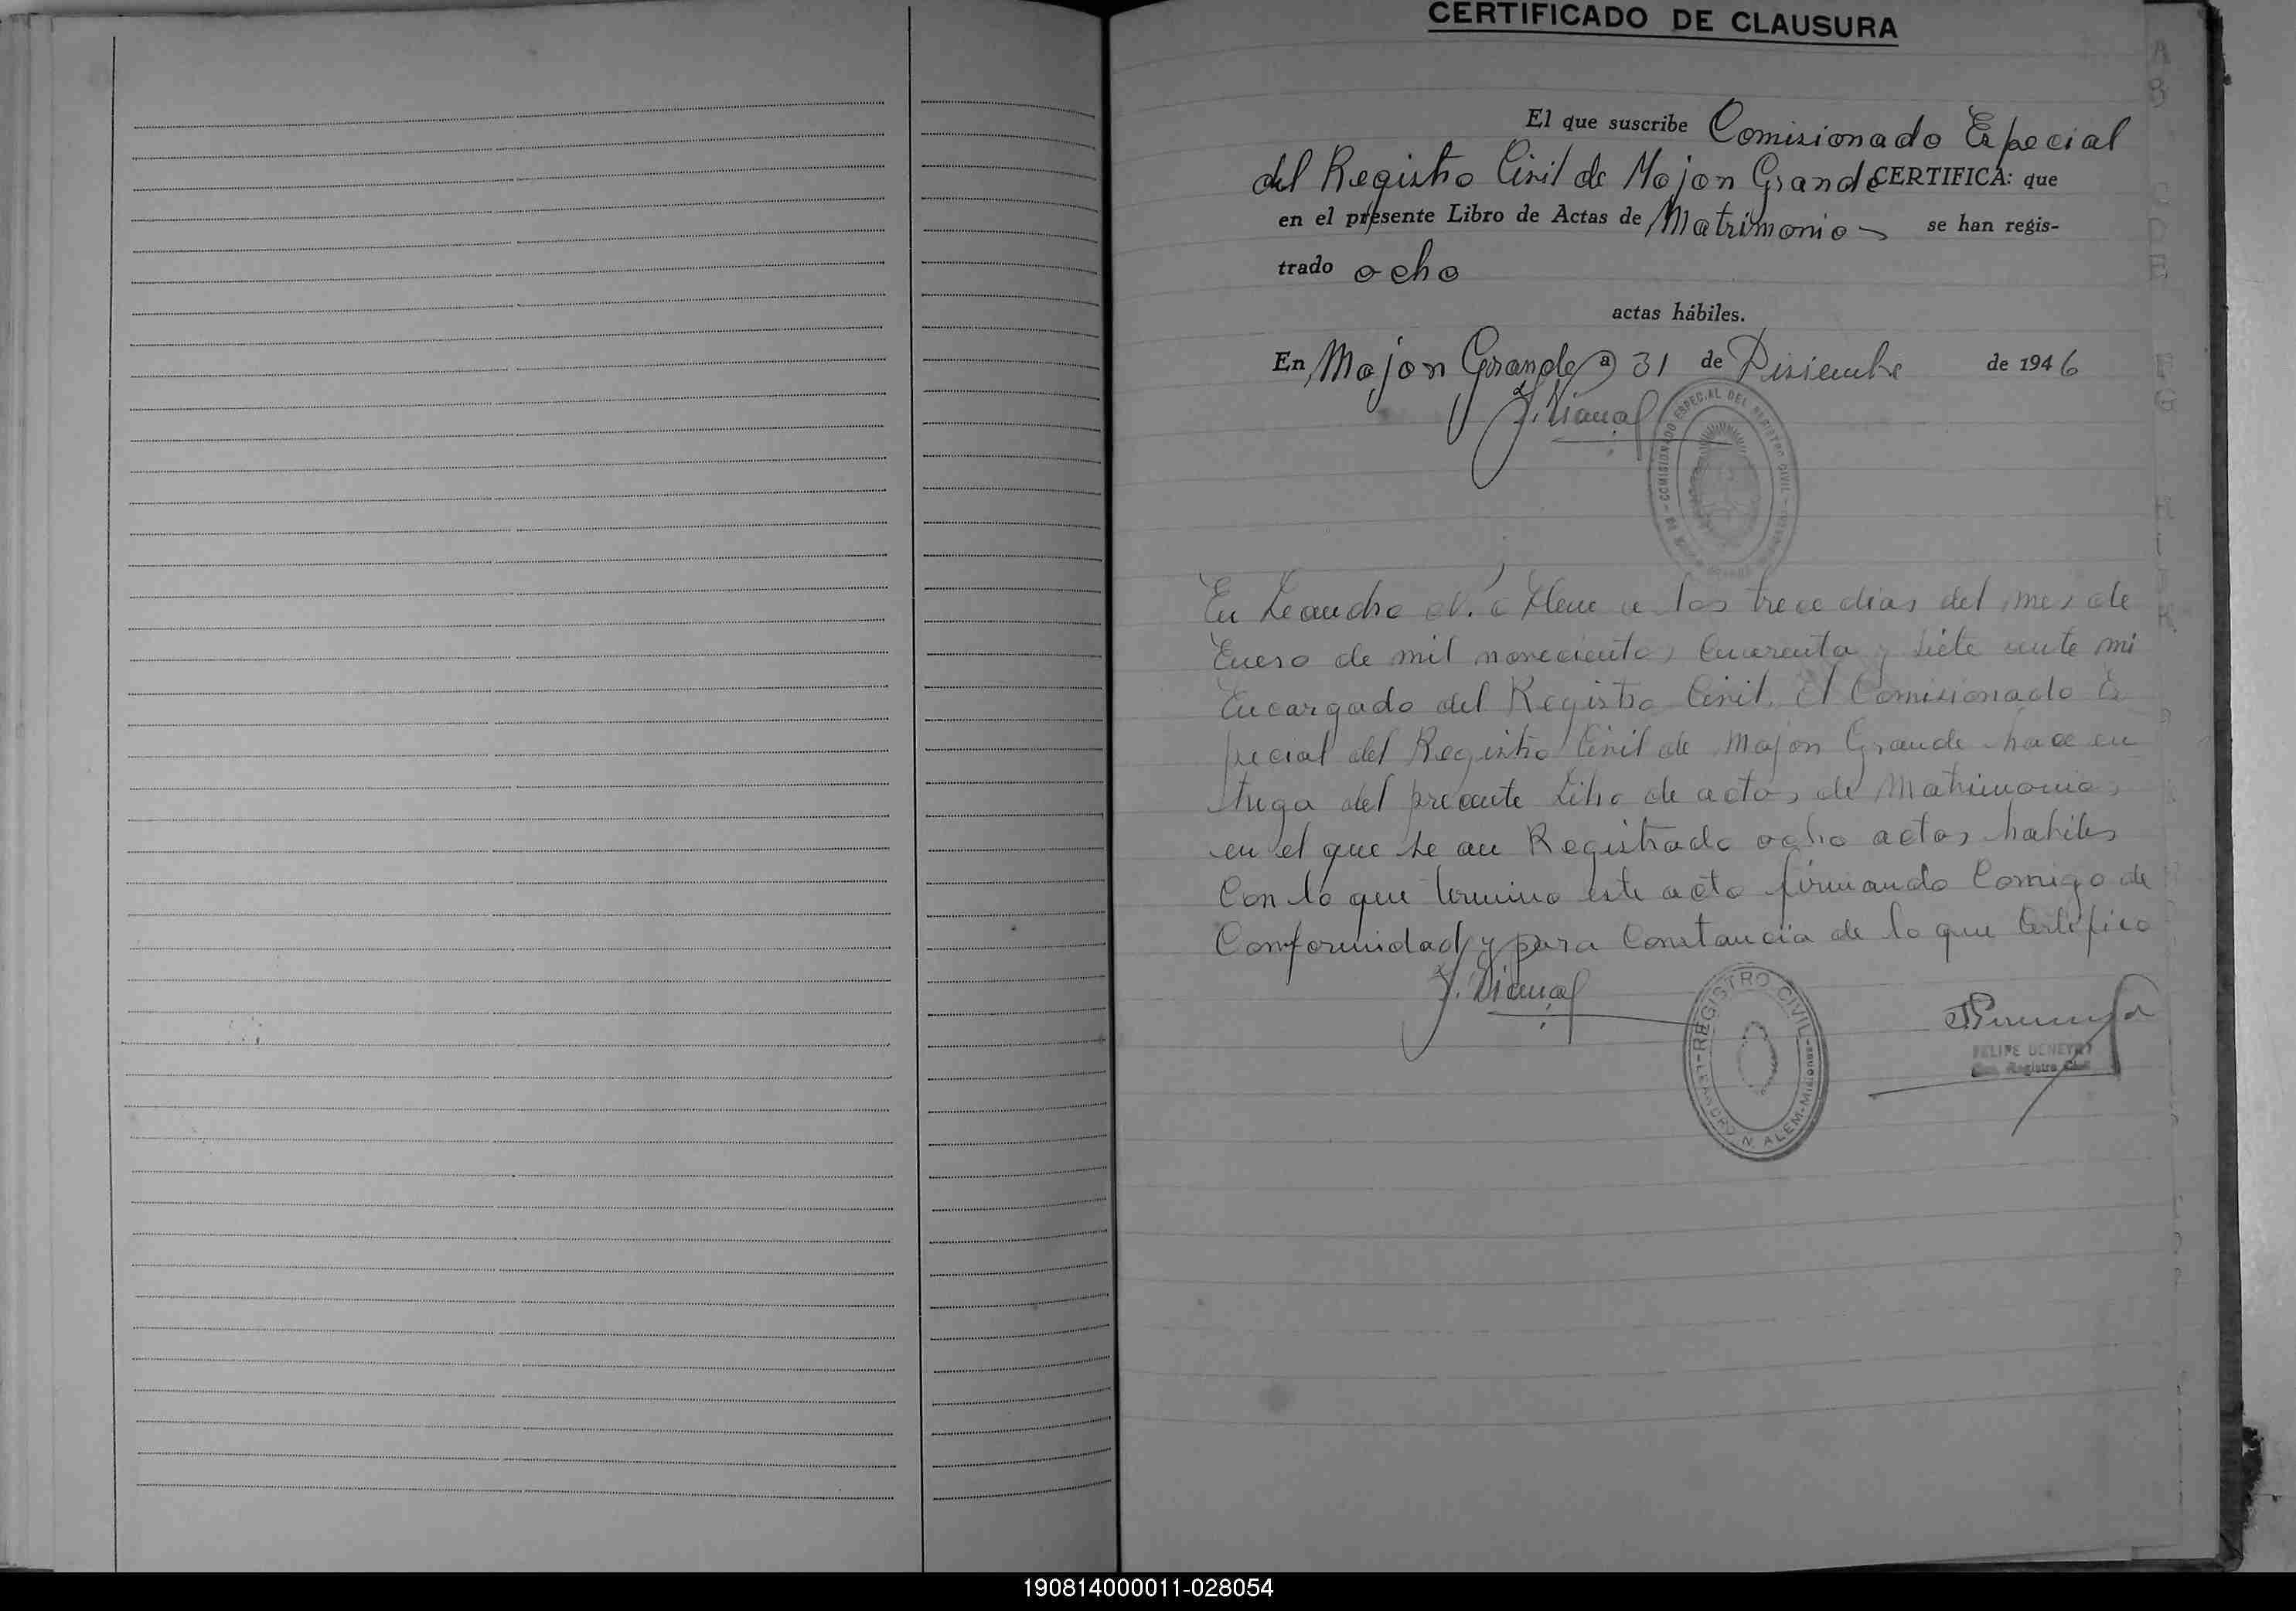 CERTIFICADO DE CLAUSURA
El que suscribe Comisionado Especial
del Registro Civil de Mojon Grande CERTIFICA: que
en el presente Libro de Actas de Matrimonio se han regis-
trado ocho
actas hábiles.
En Mojon Grande a 31 de Disiembre de 1946
COMISIONADO ESPECIAL DEL REGISTRO CIVIL
En Leandro N. Alem a los trece dias del mes de
Enero de mil novecientos Cuarenta y siete ante mi
Encargado del Registro Civil. El Comisionado Es
pecial del Registro Civil de Mojon Grande hace en
trega del presente Libro de actas de Matrimonios,
en el que se an Registrado ocho actas habiles
Con lo que termino este acto firmando Comigo de
Conformidad y para Constancia de lo que Certifico
REGISTRO CIVIL
LEANDRO N. ALEM-Misiones
FELIPE
Registro Civil
190814000011-028054